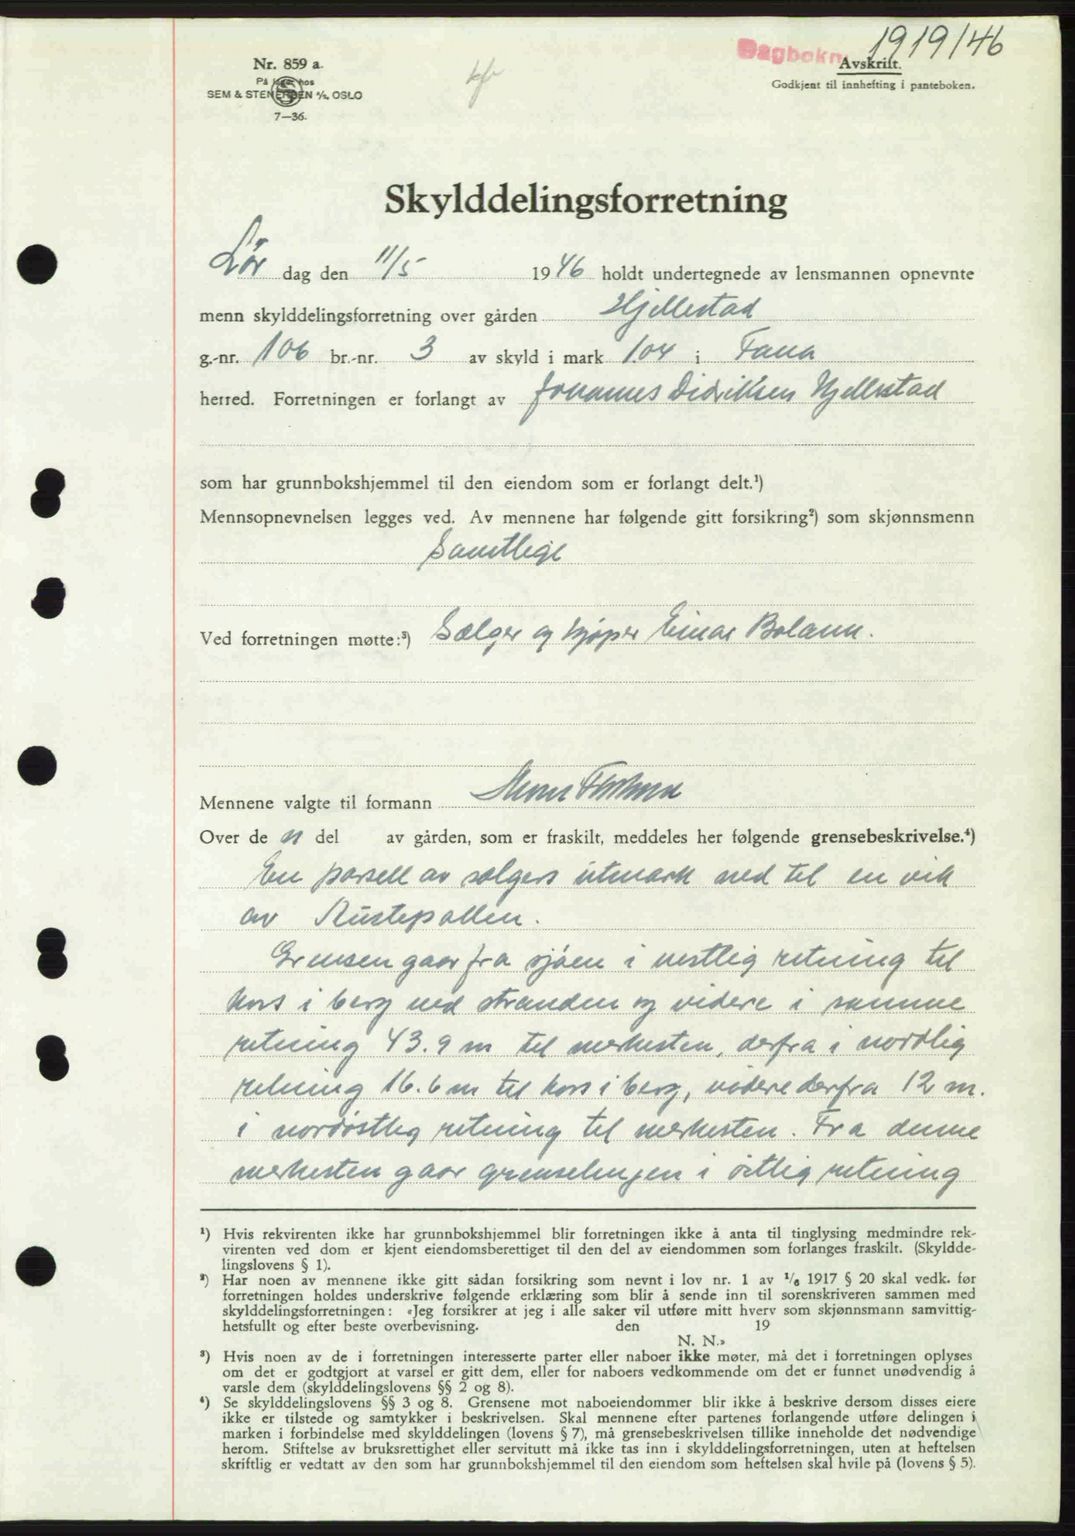 Dagbokn 1919/46
Nr. 859 a.
Avskrift.
På lager hos
Godkjent til innhefting i panteboken.
SEM & STENERSEN A/S, OSLO
7—36.
Skylddelingsforretning
Lør dag den 11/5 1946 holdt undertegnede av lensmannen opnevnte
menn skylddelingsforretning over gården Hjellestad
g.-nr. 106 br.-nr. 3 av skyld i mark 104 i Fana
herred. Forretningen er forlangt av Johannes Didriksen Hjellestad
som har grunnbokshjemmel til den eiendom som er forlangt delt.¹)
Mennsopnevnelsen legges ved. Av mennene har følgende gitt forsikring²) som skjønnsmenn
Samtlige
Ved forretningen møtte:³) Sælger og kjøper Einar Bolann.
Mennene valgte til formann
Over de n del av gården, som er fraskilt, meddeles her følgende grensebeskrivelse.⁴)
En parsell av sælgers utmark ned til en vik
av
Grensen gaar fra sjøen i vestlig retning til
kors i berg ved stranden og videre i samme
retning 43.9 m til merkesten, derfra i nordlig
retning 16.6 m til kors i berg, videre derfra 12 m.
i nordøstlig retning til merkesten. Fra denne
merkesten gaar grenselinjen i østlig retning
¹) Hvis rekvirenten ikke har grunnbokshjemmel blir forretningen ikke å anta til tinglysing medmindre rek-
virenten ved dom er kjent eiendomsberettiget til den del av eiendommen som forlanges fraskilt. (Skyldde-
lingslovens § 1).
²) Har noen av mennene ikke gitt sådan forsikring som nevnt i lov nr. 1 av 1/6 1917 § 20 skal vedk. før
forretningen holdes underskrive følgende erklæring som blir å sende inn til sorenskriveren sammen med
skylddelingsforretningen: «Jeg forsikrer at jeg i alle saker vil utføre mitt hverv som skjønnsmann samvittig-
hetsfullt og efter beste overbevisning. den 19
N. N.»
³) Hvis noen av de i forretningen interesserte parter eller naboer ikke møter, må det i forretningen oplyses
om det er godtgjort at varsel er gitt dem, eller for naboers vedkommende om det er funnet unødvendig å
varsle dem (skylddelingslovens §§ 2 og 8).
⁴) Se skylddelingslovens §§ 3 og 8. Grensene mot naboeiendommer blir ikke å beskrive dersom disses eiere
ikke er tilstede og samtykker i beskrivelsen. Skal mennene efter partenes forlangende utføre delingen i
marken i forbindelse med skylddelingen (lovens § 7), må grensebeskrivelsen tillike inneholde det nødvendige
herom. Stiftelse av bruksrettighet eller servitutt må ikke tas inn i skylddelingsforretningen, uten at heftelsen
skriftlig er vedtatt av den som har grunnbokshjemmel til den eiendom som heftelsen skal hvile på (lovens § 5).